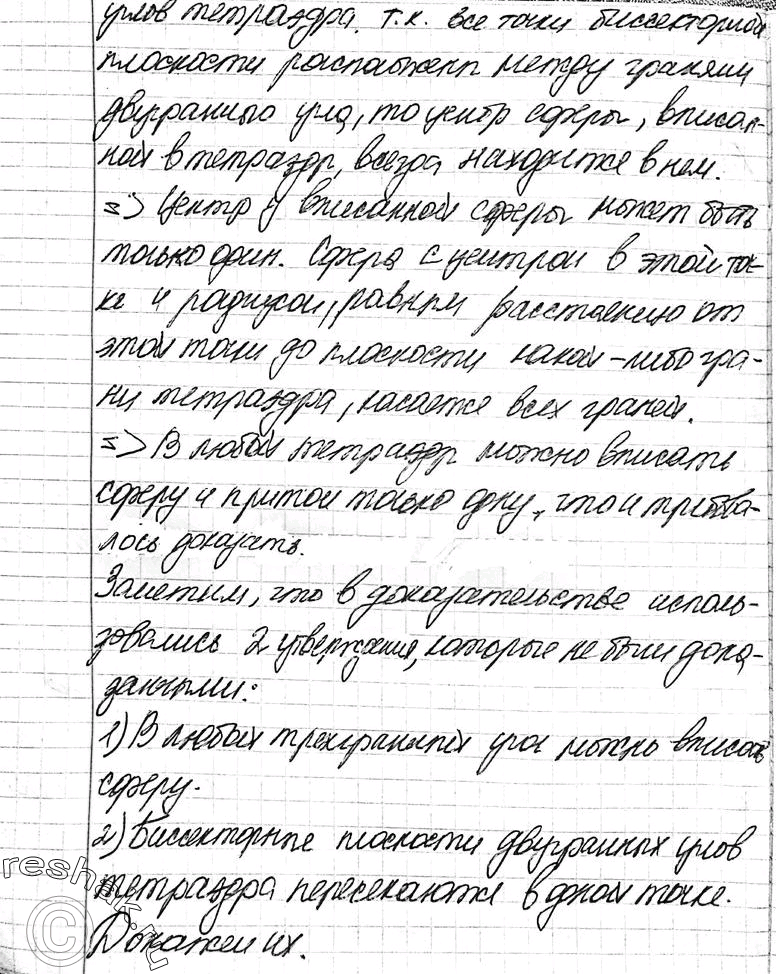 углов тетраэдра. Т.к. все точки биссекторной
плоскости расположены между гранями
двугранного угла, то центр сферы, вписан-
ной в тетраэдр, всегда находится в нем.
=> Центр у вписанной сферы может быть
только один. Сфера с центром в этой точ-
ке и радиусом, равным расстоянию от
этой точки до плоскости какой-либо гра-
ни тетраэдра, касается всех граней.
=> В любой тетраэдр можно вписать
сферу и притом только одну, что и требова-
лось доказать.
Заметим, что в доказательстве исполь-
зовались 2 утверждения, которые не были дока-
занными:
1) В любой трехгранный угол можно вписать
сферу.
2) Биссекторные плоскости двугранных углов
тетраэдра пересекаются в одной точке.
Докажем их.
reshak.ru
©